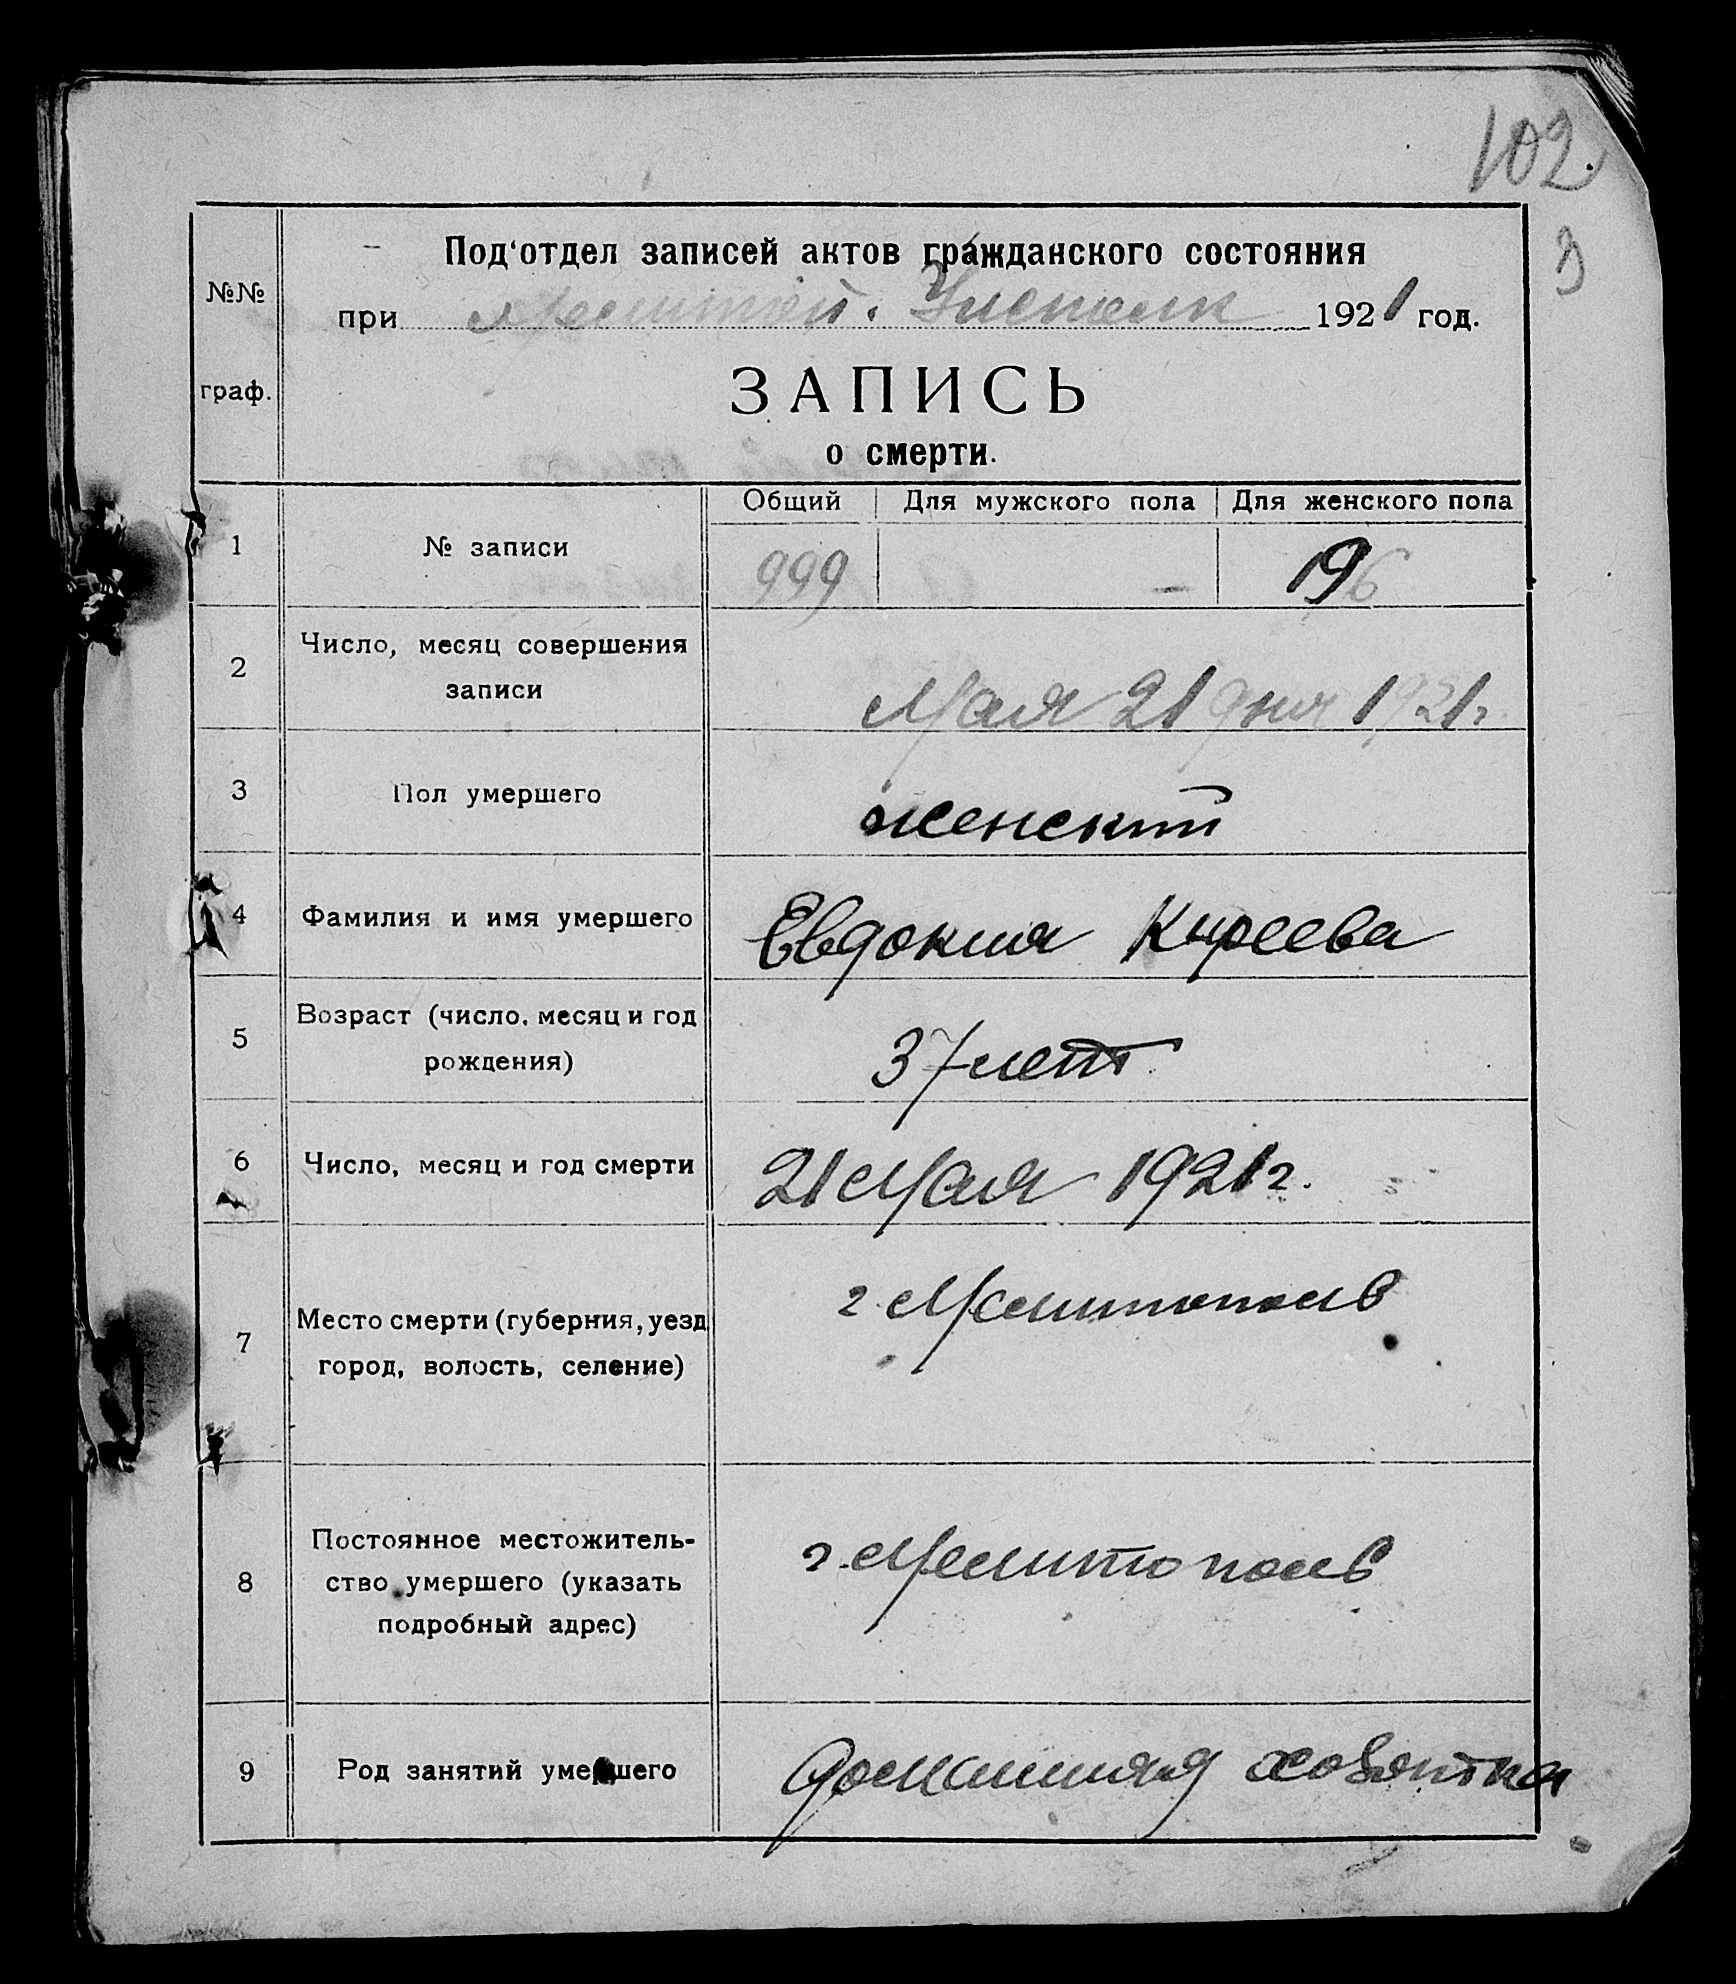 102.
Под'отдел записей актов гражданского состояния
№№
при Мелитоп. Уисполк 1921 год.
граф.
ЗАПИСЬ
о смерти.
Общий Для мужского пола Для женского пола
1 № записи 999 – 196
2 Число, месяц совершения
записи
Мая 21 дня 1921 г.
3 Пол умершего женский
4 Фамилия и имя умершего Евдокия Киреева
5 Возраст (число, месяц и год
рождения)
37 лет
6 Число, месяц и год смерти 21 Мая 1921 г.
г Мелитополь
7 Место смерти (губерния, уезд
город, волость, селение)
Постоянное местожитель-
г. Мелитополь
8 ство умершего (указать
подробный адрес)
9 Род занятий умершего домашняя хозяйка